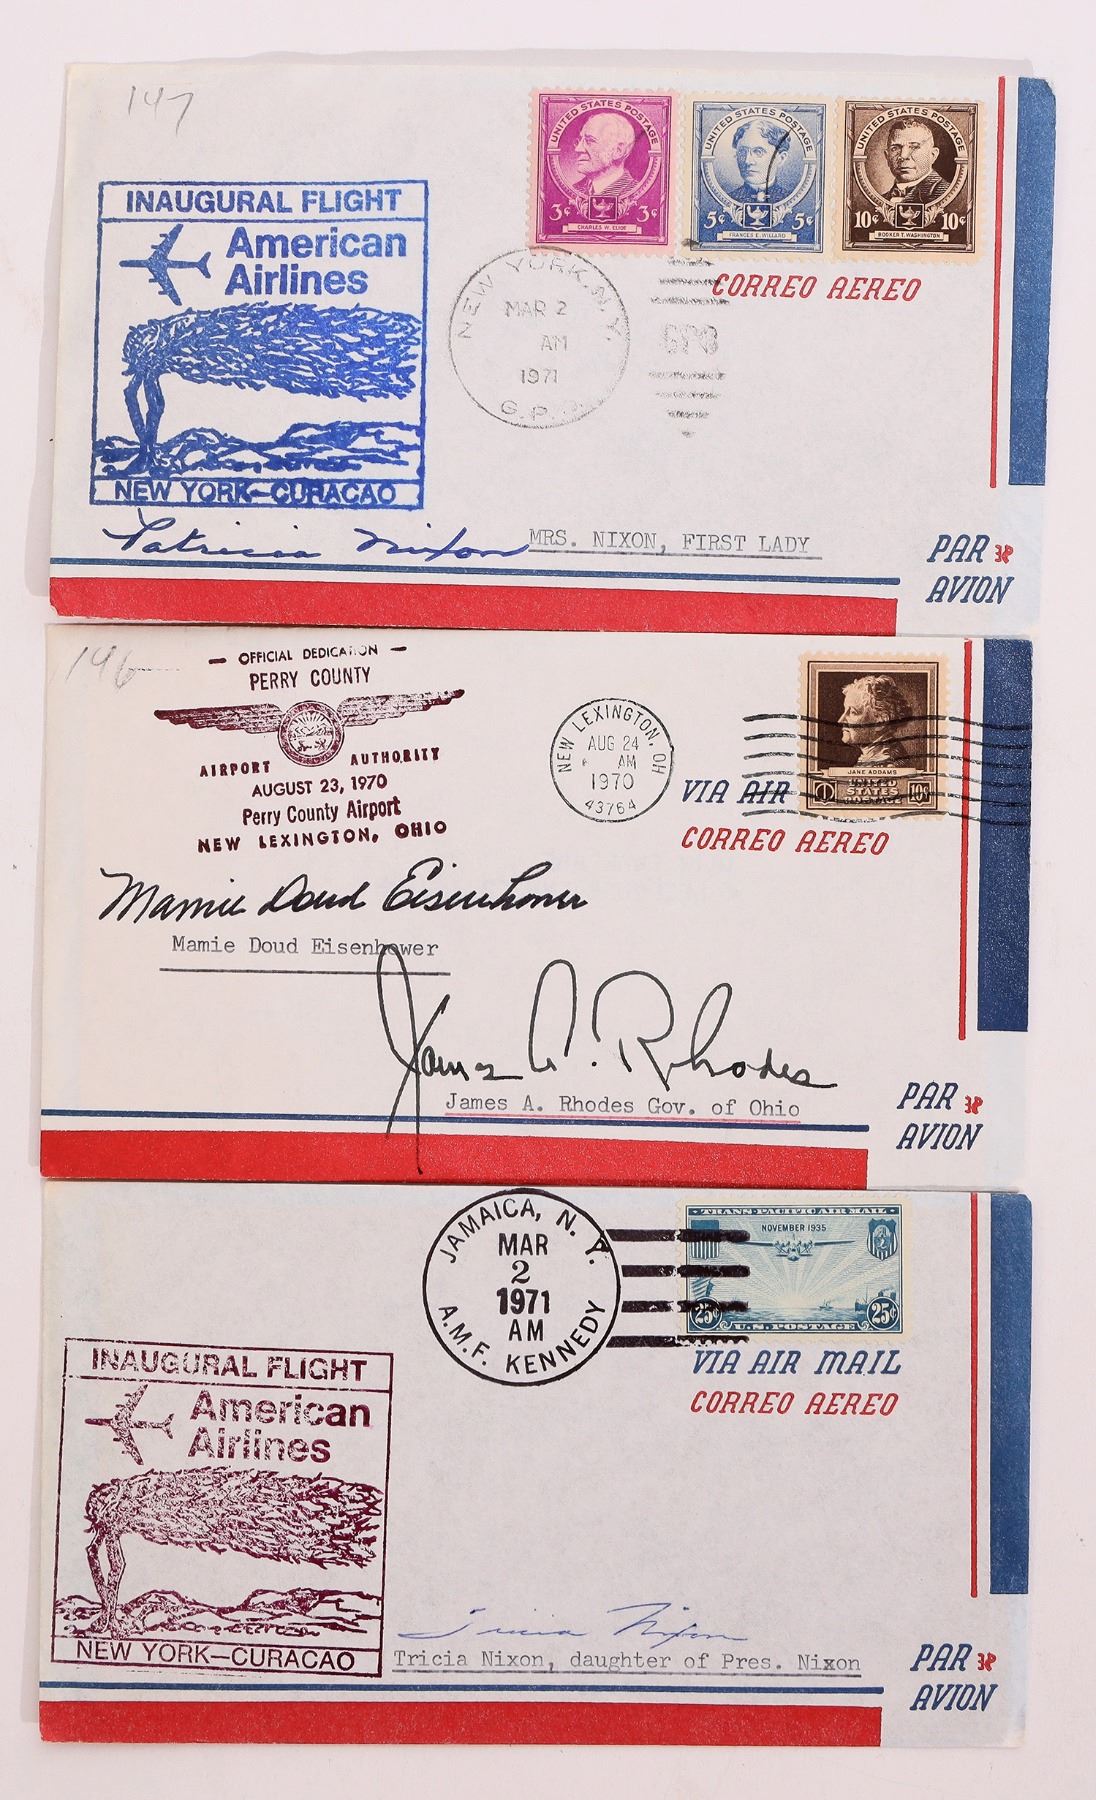 147
UNITED STATES POSTAGE
3¢ 3¢
CHARLES W. ELIOT
UNITED STATES POSTAGE
5¢ 5¢
FRANCES E. WILLARD
UNITED STATES POSTAGE
10¢ 10¢
BOOKER T. WASHINGTON
INAUGURAL FLIGHT
American
Airlines
NEW YORK—CURACAO
NEW YORK, N.Y.
MAR 2
AM
1971
G.P.
GPO
CORREO AEREO
Patricia Nixon
MRS. NIXON, FIRST LADY
PAR
AVION
146
— OFFICIAL DEDICATION —
PERRY COUNTY
AIRPORT AUTHORITY
AUGUST 23, 1970
Perry County Airport
NEW LEXINGTON, OHIO
NEW LEXINGTON, OH
AUG 24
AM
1970
43764
JANE ADDAMS
UNITED
STATES
POSTAGE
10¢
VIA AIR
CORREO AEREO
Mamie Doud Eisenhower
Mamie Doud Eisenhower
James A. Rhodes
James A. Rhodes Gov. of Ohio
PAR
AVION
JAMAICA, N. Y.
MAR
2
1971
AM
A.M.F. KENNEDY
TRANS-PACIFIC AIR MAIL
NOVEMBER 1935
25¢ 25¢
U.S. POSTAGE
VIA AIR MAIL
CORREO AEREO
INAUGURAL FLIGHT
American
Airlines
NEW YORK—CURACAO
Tricia Nixon
Tricia Nixon, daughter of Pres. Nixon
PAR
AVION